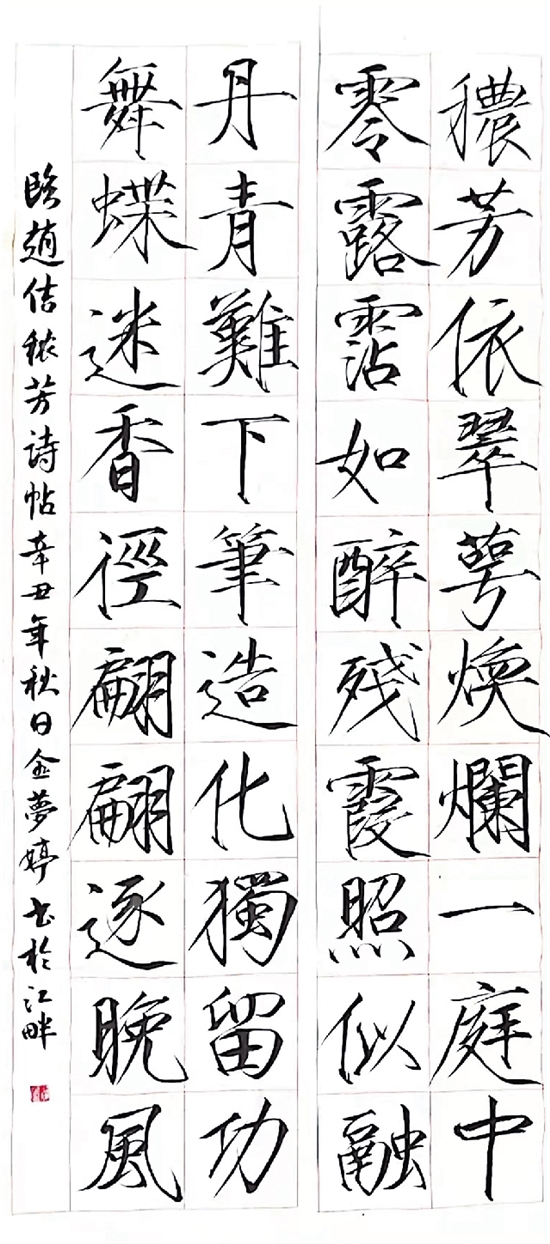 穠芳依翠萼煥爛一庭中
零露霑如醉殘霞照似融
丹青難下筆造化獨留功
舞蝶迷香徑翩翩逐晚風
臨趙佶秾芳诗帖辛丑年秋日金夢婷书於江畔